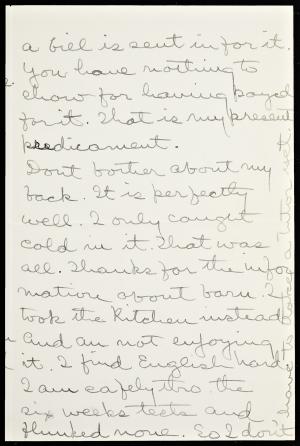 a bill is sent in for it.
You have nothing to
show for having payed
for it. That is my present
predicament.
Dont bother about my
back. It is perfectly
well. I only caught
cold in it. That was
all. Thanks for the infor
mation about barn. I
took the Kitchen instead
and am not enjoying
it. I find English hard.
I am safely thro the
six weeks tests and
flunked none. So I don't